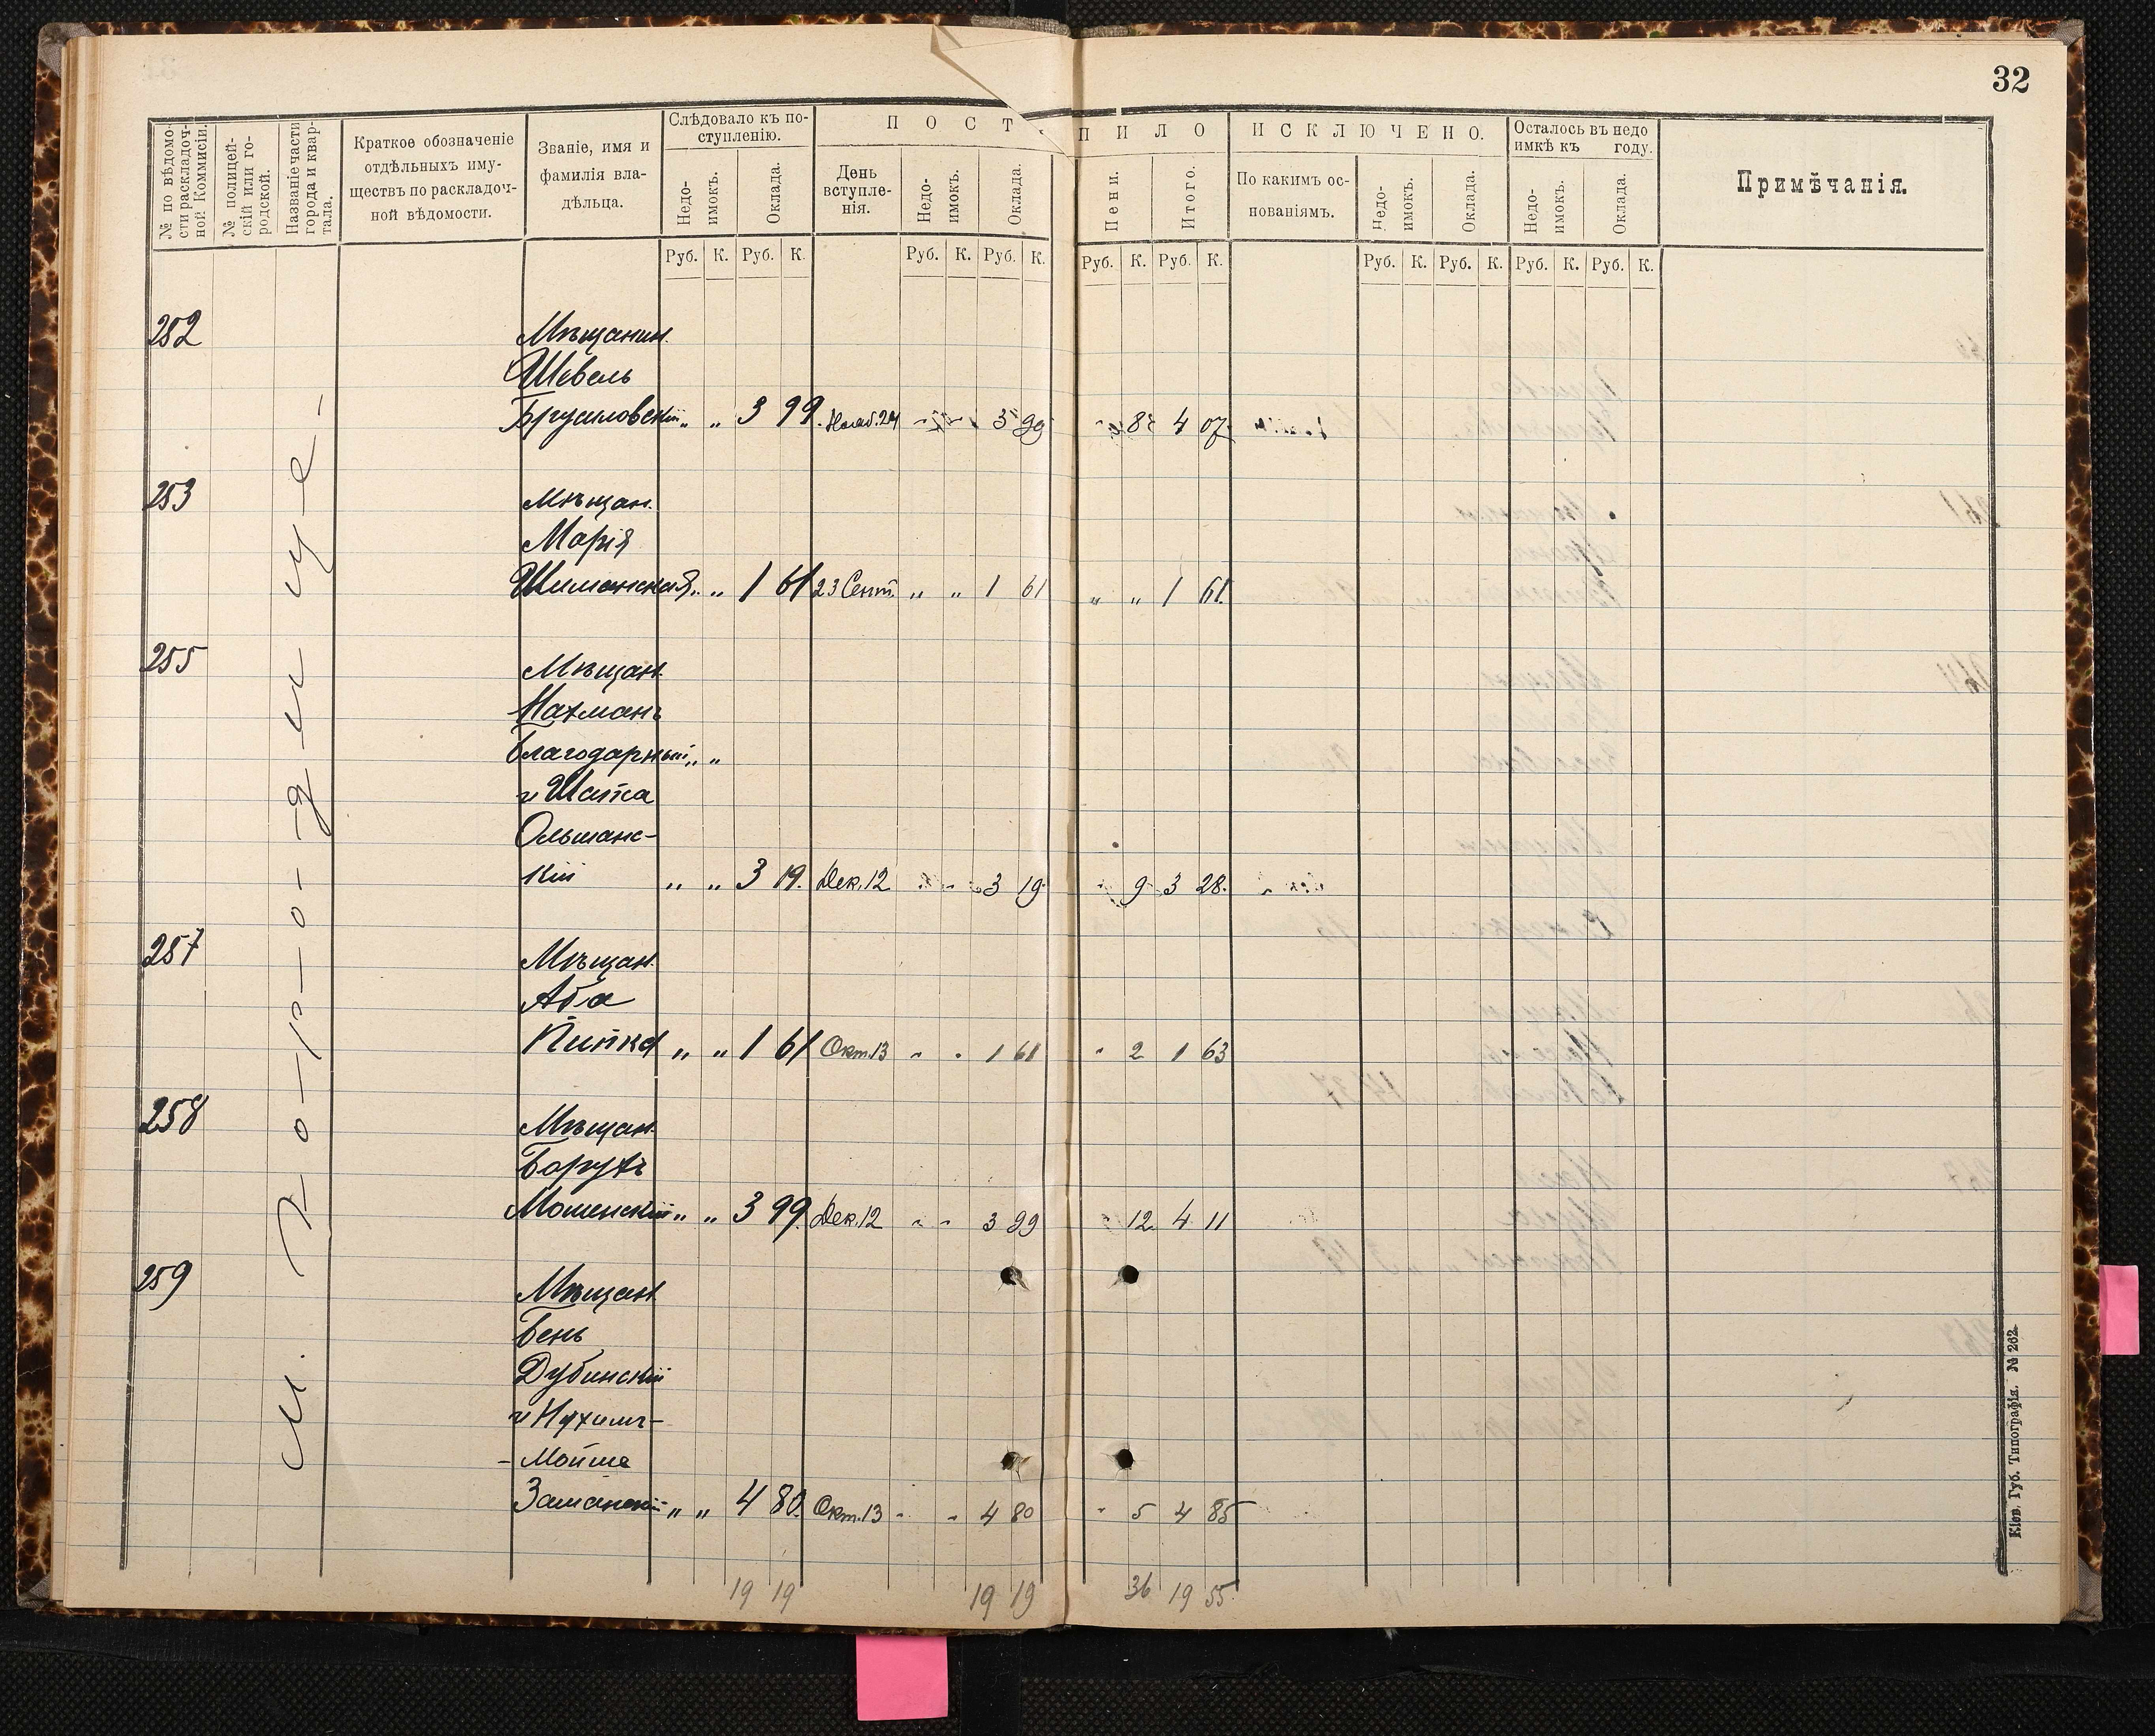 32
№ по вѣдомо-
сти раскладоч-
ной Коммисіи.
№ полицей-
скій или го-
родской.
Названіе части
города и квар-
тала.
Краткое обозначеніе
отдѣльныхъ иму-
ществъ по раскладоч-
ной вѣдомости.
Званіе, имя и
фамилія вла-
дѣльца.
Слѣдовало къ по-
ступленію.
Недо-
имокъ.
Оклада.
ПОСТ
ПИЛО
День
вступле-
нія.
Недо-
имокъ.
Оклада.
Пени.
Итого.
ИСКЛЮЧЕНО.
По какимъ ос-
нованіямъ.
Недо-
имокъ.
Оклада.
Осталось въ недо
имкѣ къ году.
Недо-
имокъ.
Оклада.
Примѣчанія.
Руб. К. Руб. К. Руб. К. Руб. К. Руб. К. Руб. К. Руб. К. Руб. К. Руб. К. Руб. К.
м. Городище
252 Мѣщанин.
Шевель
Брусиловскій „ „ 3 99. Нояб. 24 3 99 8 4 07
253 Мѣщан.
Марія
Шиманская „ „ 1 61 23 Сент. „ „ 1 61 „ „ 1 61
255 Мѣщан.
Нахманъ
Благодарный „ „
и Шапса
Ольшанс-
кій „ „ 3 19. Дек. 12 3 19 9 3 28.
257 Мѣщан.
Аба
Пипка „ „ 1 61 Окт. 13 „ „ 1 61 „ 2 1 63
258 Мѣщан.
Борухъ
Мошенскій „ „ 3 99. Дек. 12 „ „ 3 99 12 4 11
259 Мѣщан.
Бень
Дубинскій
и Нухимъ-
-Мойше
Заманскій „ „ 4 80. Окт. 13 „ „ 4 80 „ 5 4 85
19 19 19 19 36 19 55
Кіев. Губ. Типографія. № 262.